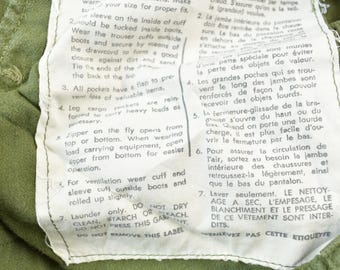 wear your
your size for proper fit.
2. sleeve on the inside of cuff
should be tucked inside boots.
Wear the trouser cuffs outside
and securely by means of
the drawcord to form a good
closure against dirt and sand
Tie the ends of the
the back of the
3. All pockets have a flap to pre-
vent loss of valuable items.
4. Leg cargo pockets are rein-
forced to carry heavy loads as
necessary.
5. Zipper on the fly opens from
top to bottom. When wearing
load carrying equipment, open
zipper from bottom for easier
operation.
6. For ventilation wear cuff and
sleeve cuff outside boots and
rolled up slightly.
7. Launder only. DO NOT DRY
CLEAN, STARCH OR BLEACH.
DO NOT PRESS THIS GARMENT.
DO NOT REMOVE THIS LABEL
S'assurer qu'on a la taille
(e grandeur) voulue.
2. La jambe intérieure du pantalon
sont munies
d'une patte spéciale pour éviter
la perte des objets de valeur.
4. Les grandes poches qui se trou-
vent le long des jambes sont
renforcées et peuvent à l'occasion
recevoir des objets lourds.
5. La fermeture-glissade de la bra-
guette s'ouvre de haut en bas.
Quand on porte une lourde
charge, il est plus facile d'ou-
vrir la fermeture par le bas.
6. Pour assurer la circulation de
l'air, sortez au besoin la jambe
intérieure des chaussures et
retroussez-la légèrement, ainsi
que le bas du pantalon.
7. Laver seulement. LE NETTOY-
AGE A SEC, L'EMPESAGE, LE
BLANCHIMENT ET LE PRESSAGE
DE CE VETEMENT SONT INTER-
DITS.
PAS CETTE ETIQUETTE